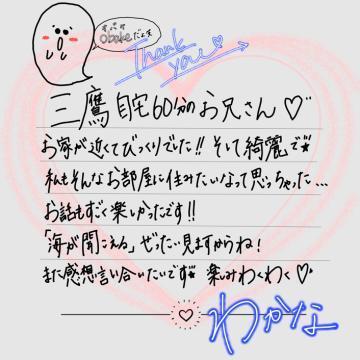 obakeだよ
Thank you
三鷹 自宅60分のお兄さん♡
お家が近くてびっくりでした!! そして綺麗で
私もそんなお部屋に住みたいなって思っちゃった…
お話もすごく楽しかったです!!
「海が聞こえる」ぜったい見ますからね!
また感想言い合いたいです 楽しみわくわく♡
わかな